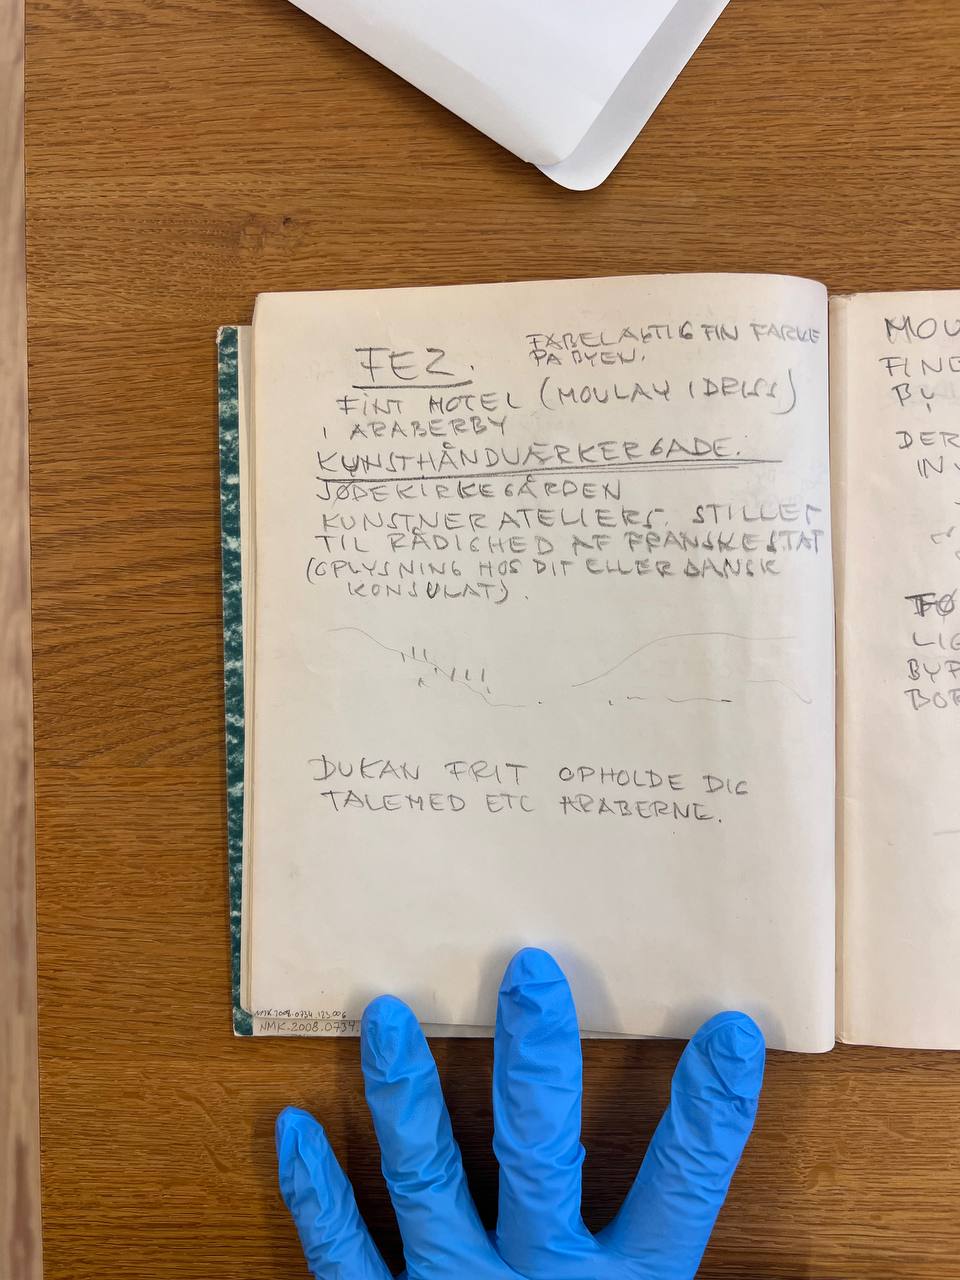 FEZ.
FABELAKTIG FIN FARVE
PÅ BYEN.
FINT HOTEL (MOULAY IDRISS)
I ARABERBY
KUNSTHÅNDVÆRKERGADE.
JØDEKIRKEGÅRDEN
KUNSTNER ATELIERS. STILLET
TIL RÅDIGHED AF FRANSKE STAT
(OPLYSNING HOS DIT ELLER DANSK
KONSULAT).
DU KAN FRIT OPHOLDE DIG
TALE MED ETC ARABERNE.
NMK.2008.0734.123.006
NMK.2008.0734.
MOU
FINE
BY
DER
IN
FØ
LIG
BYP
BOR